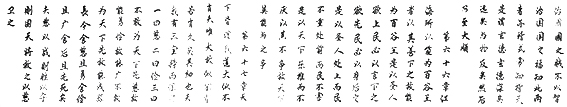 治國國之賊不以智
治國國之福知此兩
者亦稽式常知稽式
是謂玄德玄德深矣
遠矣與物反矣然后
乃至大順
第六十六章江
海所以能為百谷王
者以其善下之故能
為百谷王是以聖人
欲上民必以言下之
欲先民必以身后之
是以聖人處上而民
不重處前而民不害
是以天下樂推而不
厭以其不爭故天下
莫能與之爭
第六十七章天
下皆謂我道大似不
肖夫唯大故似不肖
若肖久矣其細也夫
我有三寶持而保之
一曰慈二曰儉三曰
不敢為天下先慈故
能勇儉故能廣不敢
為天下先故能成器
長今舍慈且勇舍儉
且廣舍后且先死矣
夫慈以戰則勝以守
則固天將救之以慈
衛之